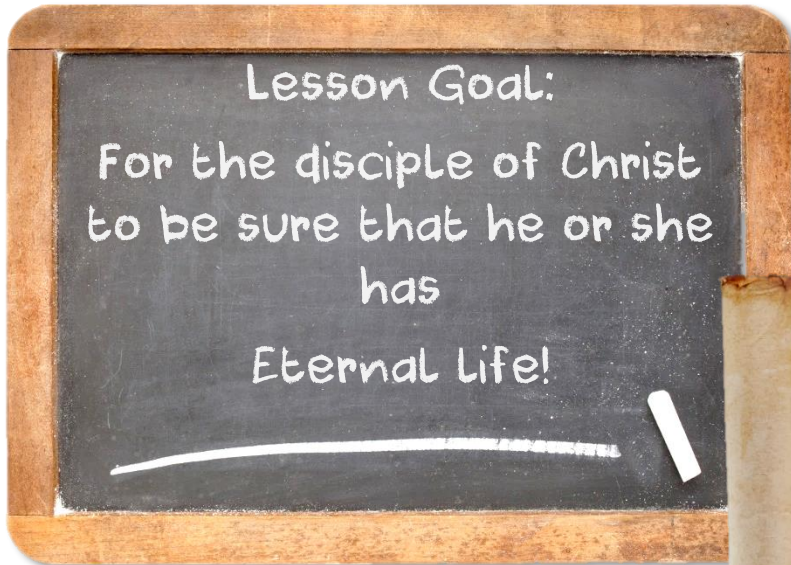 Lesson Goal:
For the disciple of Christ
to be sure that he or she
has
Eternal Life!